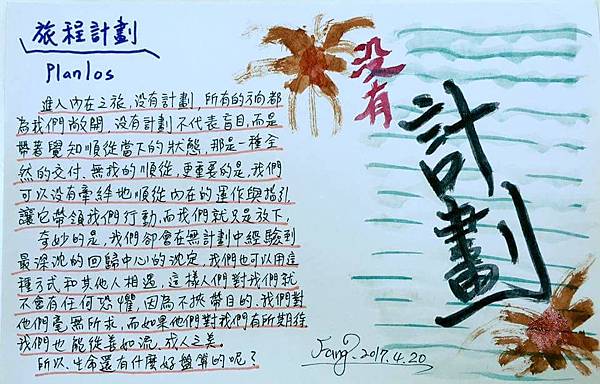 旅程計劃
Planlos
進入內在之旅，沒有計劃，所有的方向都
為我們敞開，沒有計劃不代表盲目，而是
帶著覺知順從當下的狀態，那是一種全
然的交付，無我的順從，更重要的是，我們
可以沒有牽絆地順從內在的運作與指引，
讓它帶領我們行動，而我們就只是放下，
奇妙的是，我們卻會在無計劃中經驗到
最深沈的回歸中心的沈定，我們也可以用這
種方式和其他人相遇，這樣人們對我們就
不會有任何恐懼，因為不挾帶目的，我們對
他們毫無所求，而如果他們對我們有所期待
我們也能從善如流，成人之美。
所以，生命還有什麼好盤算的呢？
没有
計劃
Fang. 2017.4.20